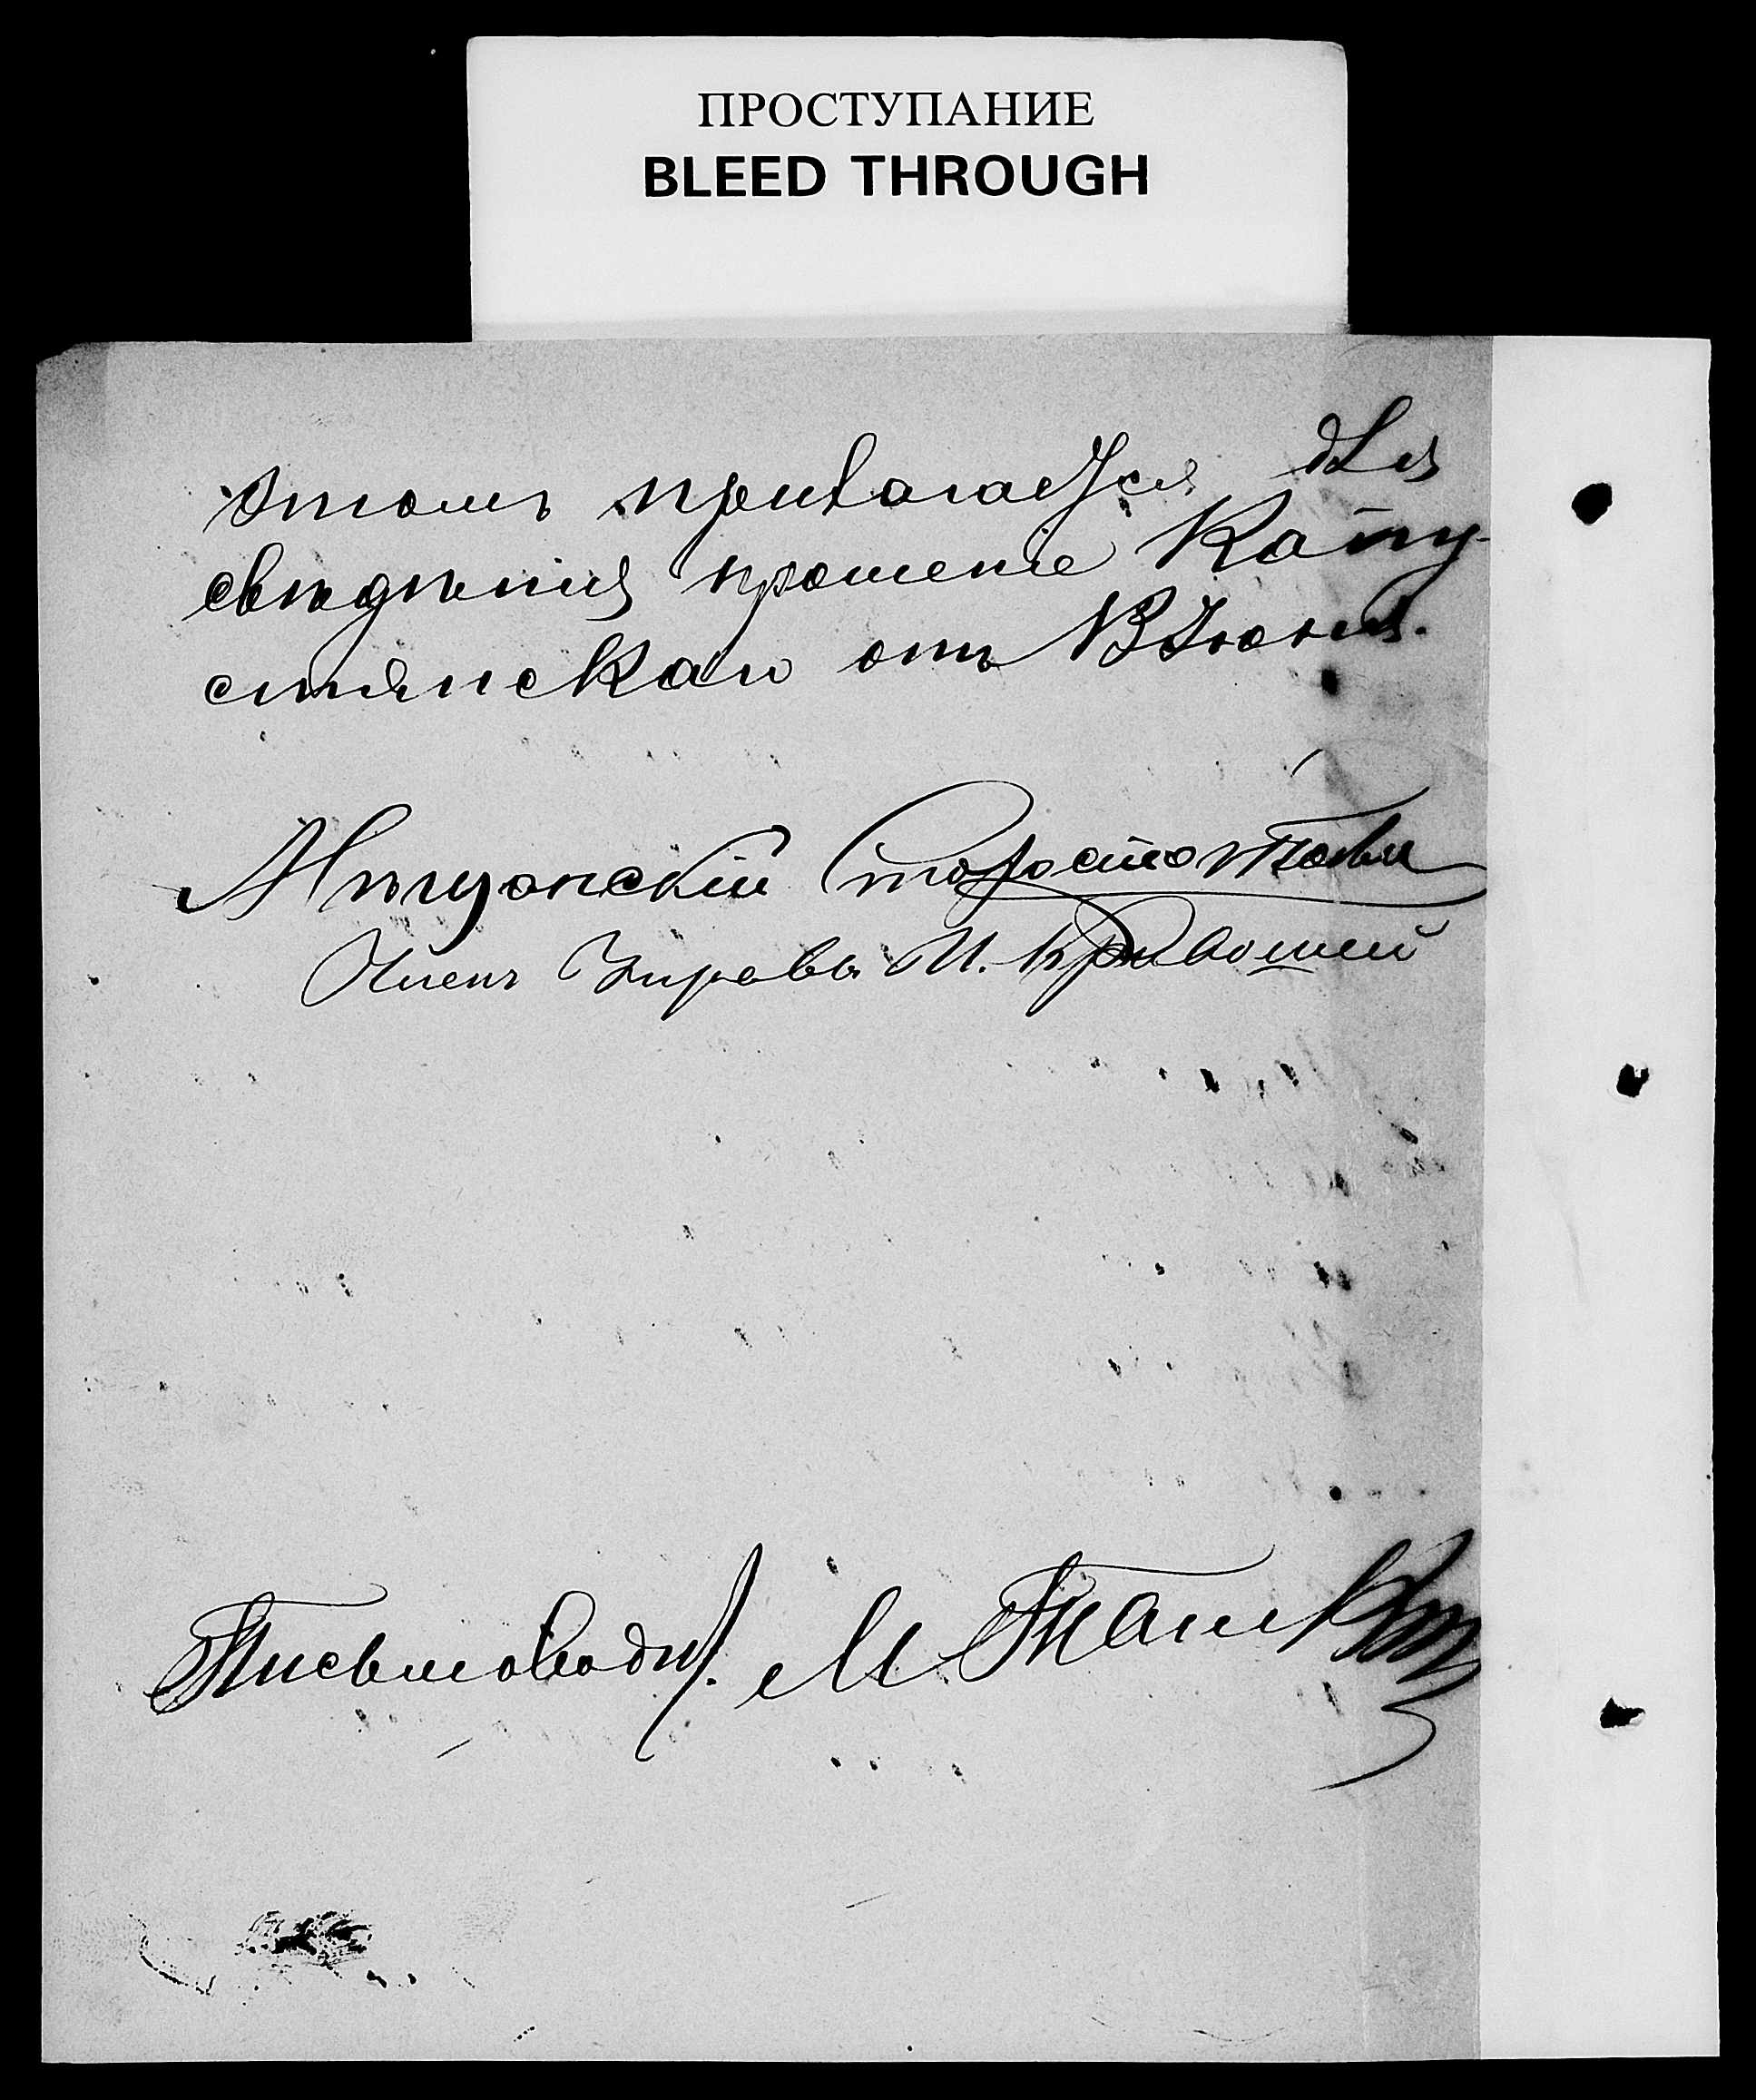 ПРОСТУПАНИЕ
BLEED THROUGH
этомъ прилагается для
свѣдѣнія прошеніе Капу-
стянскаго отъ 13 Іюня.
Мѣщанскій Староста
Членъ Управы И. Кривошей
Письмоводит. М.